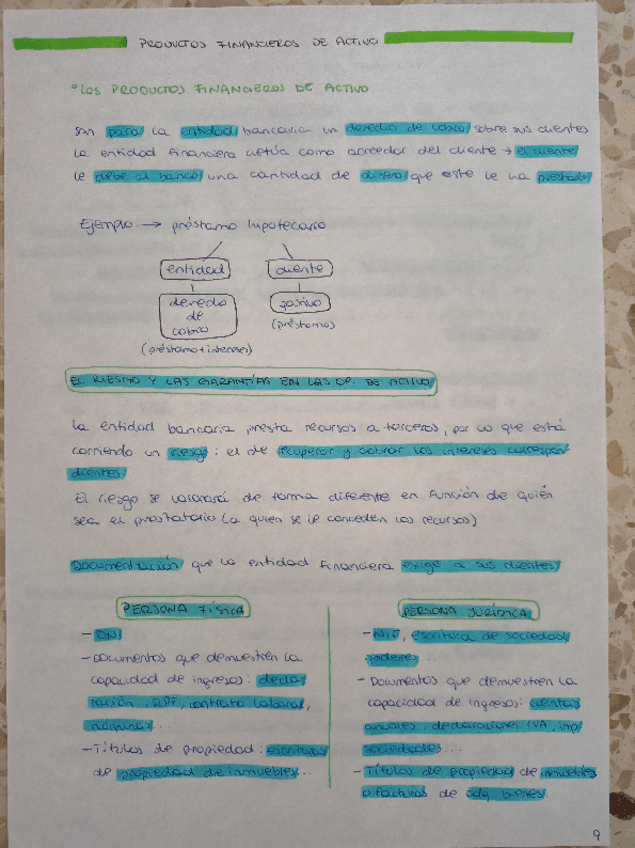 PRODUCTOS FINANCIEROS DE ACTIVO
° LOS PRODUCTOS FINANCIEROS DE ACTIVO
Son para la entidad bancaria un derecho de cobro sobre sus clientes
La entidad financiera actúa como acreedor del cliente → el cliente
le debe al banco una cantidad de dinero que este le ha prestado
Ejemplo → préstamo hipotecario
entidad cliente
derecho de cobro pasivo
(préstamo + intereses) (préstamo)
EL RIESGO Y LAS GARANTÍAS EN LAS OP. DE ACTIVO
La entidad bancaria presta recursos a terceros, por lo que está
corriendo un riesgo: el de recuperar y cobrar los intereses correspon-
dientes.
El riesgo se valorará de forma diferente en función de quién
sea el prestatario (a quien se le conceden los recursos)
Documentación que la entidad financiera exige a sus clientes
PERSONA FÍSICA
- DNI
- Documentos que demuestren la
capacidad de ingresos: decla-
ración IRPF, contrato laboral,
nóminas...
- Títulos de propiedad: escrituras
de propiedad de inmuebles...
PERSONA JURÍDICA
- NIF, escritura de sociedad
poderes...
- Documentos que demuestren la
capacidad de ingresos: cuentas
anuales, declaraciones IVA, imp
sociedades...
- Títulos de propiedad de inmuebles
o facturas de adq bienes.
9